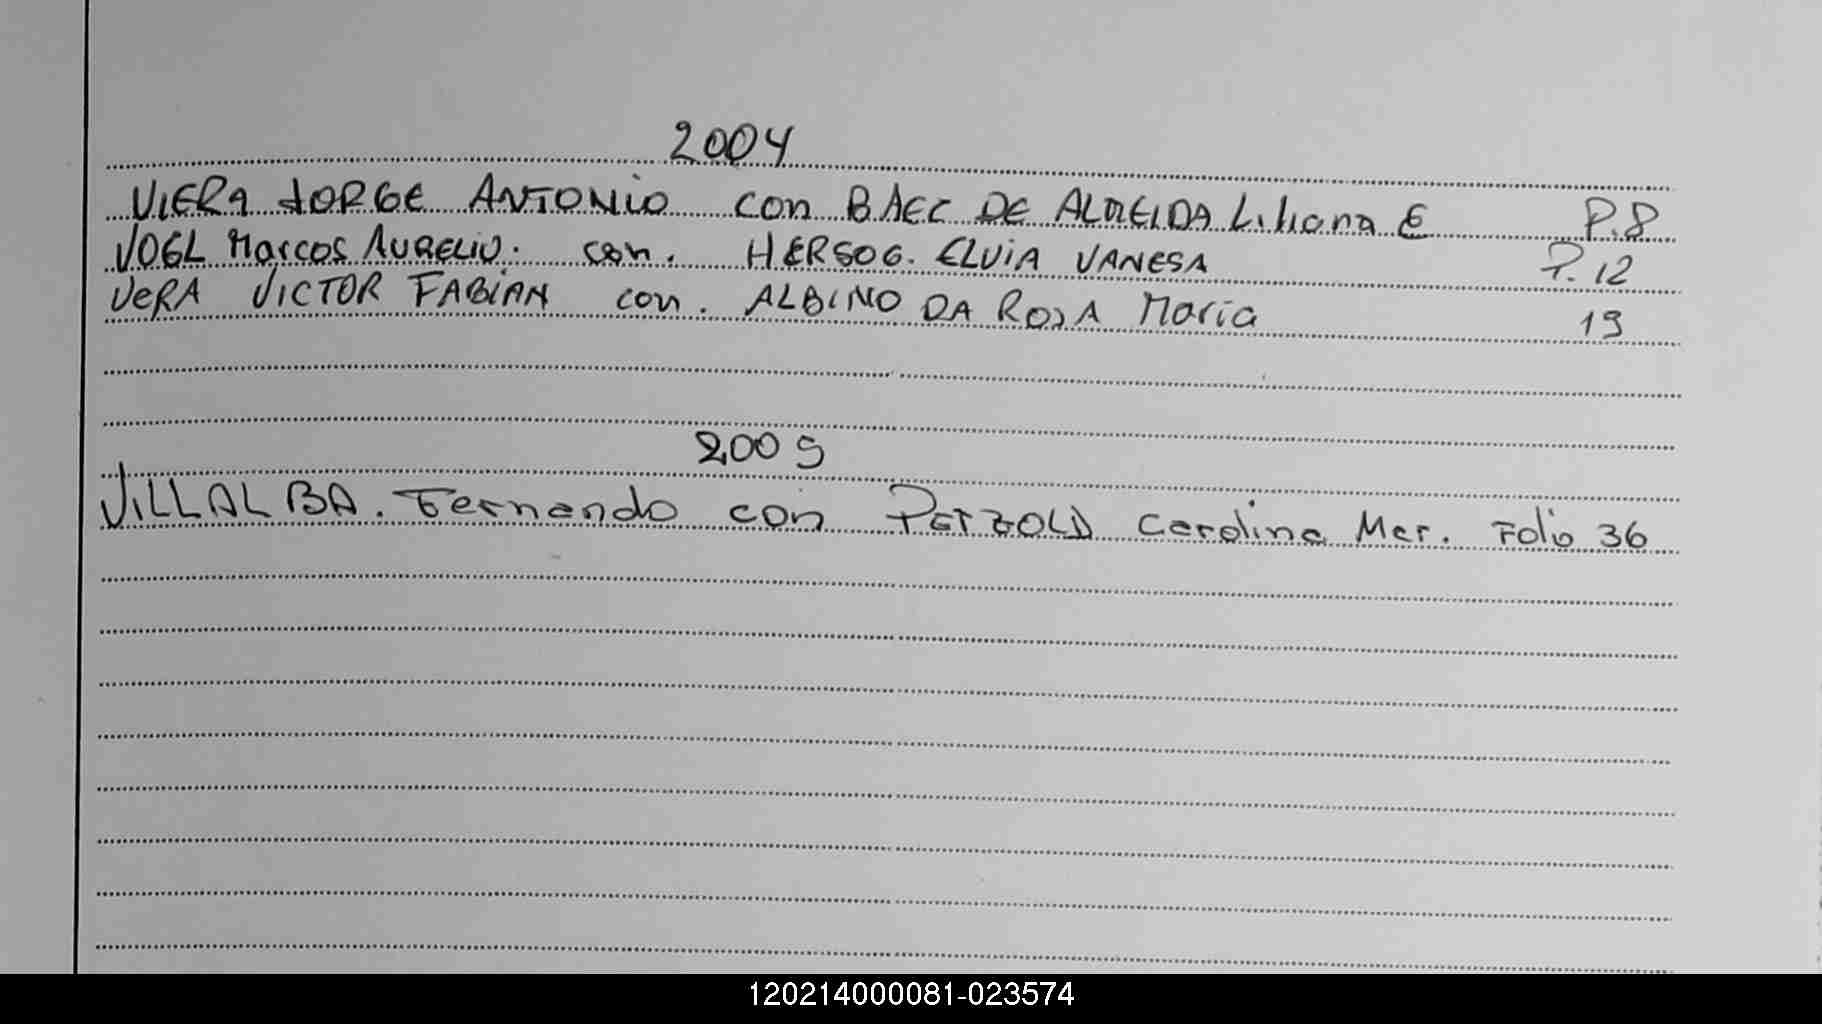 2004
VIERA JORGE ANTONIO con BAEC DE ALMEIDA Liliana E P.8
VOGL Marcos AURELIO. con. HERSOG. ELVIA VANESA P. 12
VERA VICTOR FABIAN con. ALBINO DA ROSA Maria 19
2005
VILLALBA. Fernando con PETZOLD Carolina Mar. Folio 36
120214000081-023574